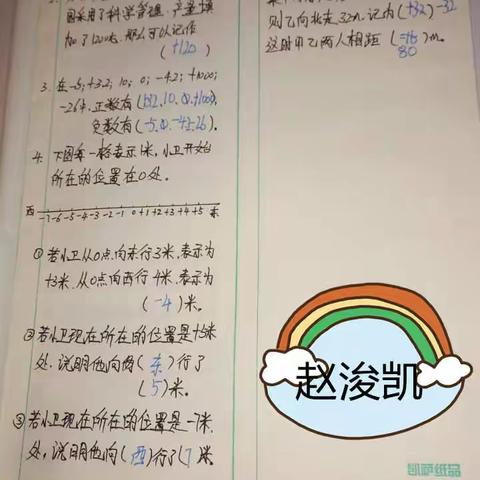 因采用了科学管理，产量增
加了120t，那么可以记作
(+120)
3. 在-5；+32；10；0；-42；+1000；
-26中，正数有(+32.10.0.+1000)，
负数有(-5.0.-42.-26)。
4. 下图每一格表示1米，小卫开始
所在的位置在0处。
西 -7 -6 -5 -4 -3 -2 -1 0 +1 +2 +3 +4 +5 东
①若小卫从0点向东行3米，表示为
+3米，从0点向西行4米，表示为
(-4)米。
②若小卫现在所在的位置是+5米
处，说明他向(东)行了
(5)米。
③若小卫现在所在的位置是-7米
处，说明他向(西)行了(7)米
则乙向北走32m，记为(+32) -32
这时甲乙两人相距( )m。
80
赵浚凯
凯萨纸品